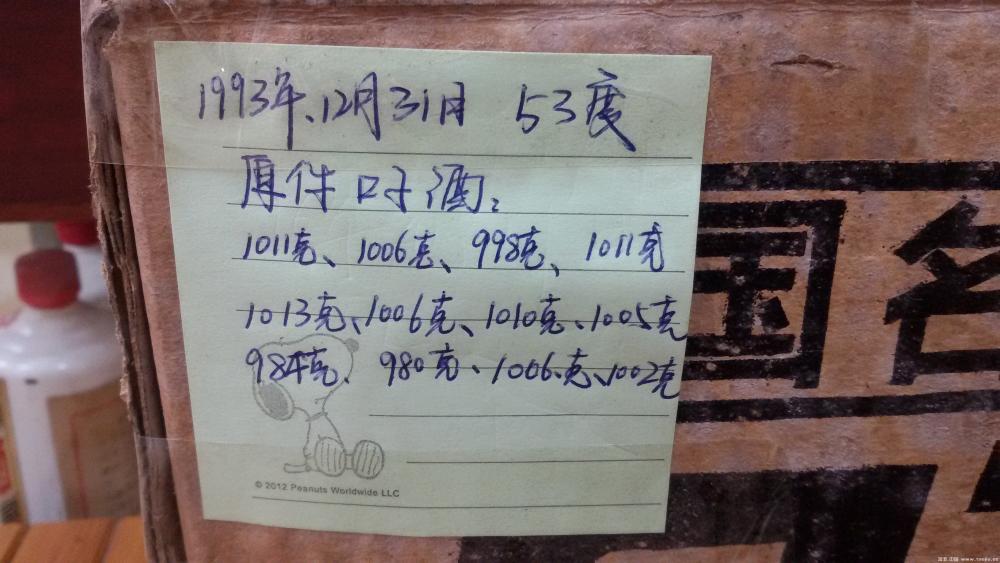 1993年、12月31日 53度
原件口子酒;
1011克、1006克、998克、1011克
1013克、1006克、1010克、1005克
984克、980克、1006克、1002克
© 2012 Peanuts Worldwide LLC
国名